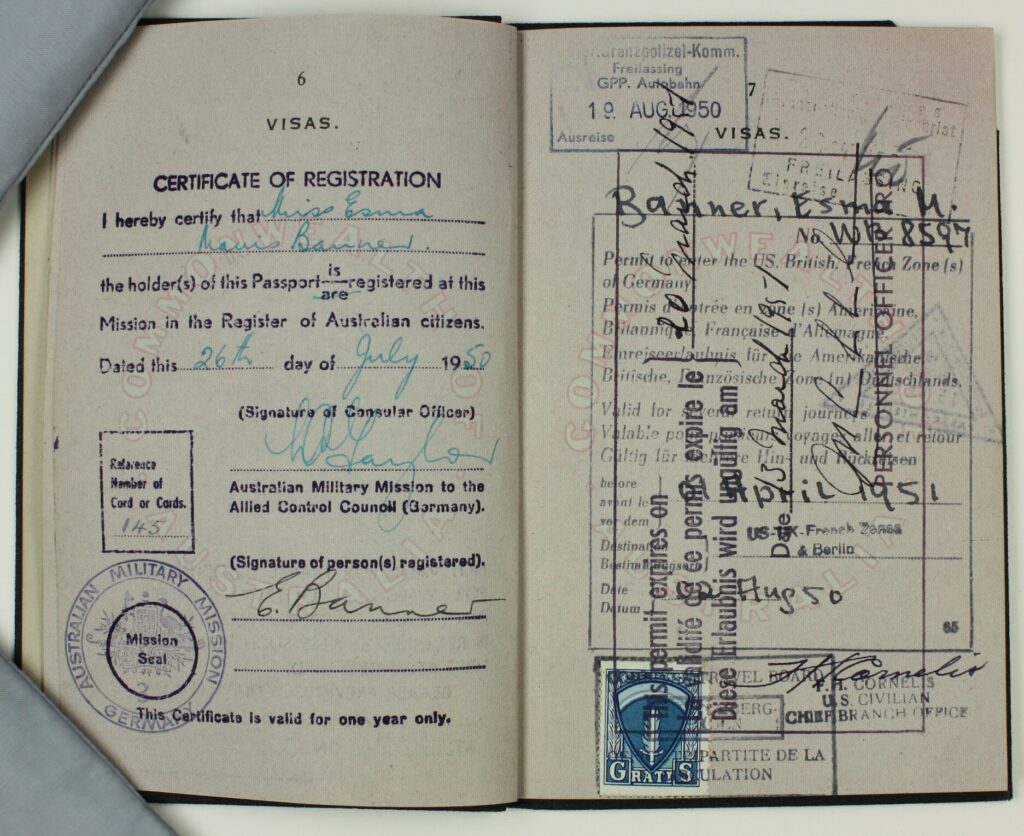 6
VISAS.
CERTIFICATE OF REGISTRATION
I hereby certify that Miss Esma
Mavis Banner.
the holder(s) of this Passport is/are registered at this
Mission in the Register of Australian citizens.
Dated this 26th day of July 1950
(Signature of Consular Officer)
Australian Military Mission to the
Allied Control Council (Germany).
Reference
Number of
Card or Cards.
145
(Signature of person(s) registered).
E. Banner
AUSTRALIAN MILITARY MISSION
GERMANY
Mission
Seal
This Certificate is valid for one year only.
Grenzpolizei-Komm.
Freilassing
GPP. Autobahn
19 AUG. 1950
Ausreise
7
VISAS.
FREILASSING
Einreise
Banner, Esma M.
No WB 8597
Permit to enter the US. British. French Zone (s)
of Germany.
Permis d'entrée en Zone (s) Américaine,
Britannique, Française d'Allemagne.
Einreiseerlaubnis für die Amerikanische
Britische, Französische Zone (n) Deutschlands.
Valid for several return journeys
Valable pour plusieurs voyages aller et retour
Gültig für mehrere Hin- und Rückreisen
before
avant le
vor dem
01 April 1951
Destination
US-UK-French Zones
& Berlin
Date
Datum
02 Aug 50
65
This permit expires on
La validité de ce permis expire le
Diese Erlaubnis wird ungültig am
20 March 1951
Date 13 March 1951
PERSONNEL OFFICER IRO
TRAVEL BOARD
F. H. CORNELIS
U.S. CIVILIAN
CHIEF BRANCH OFFICE
PARTITE DE LA
GRATIS